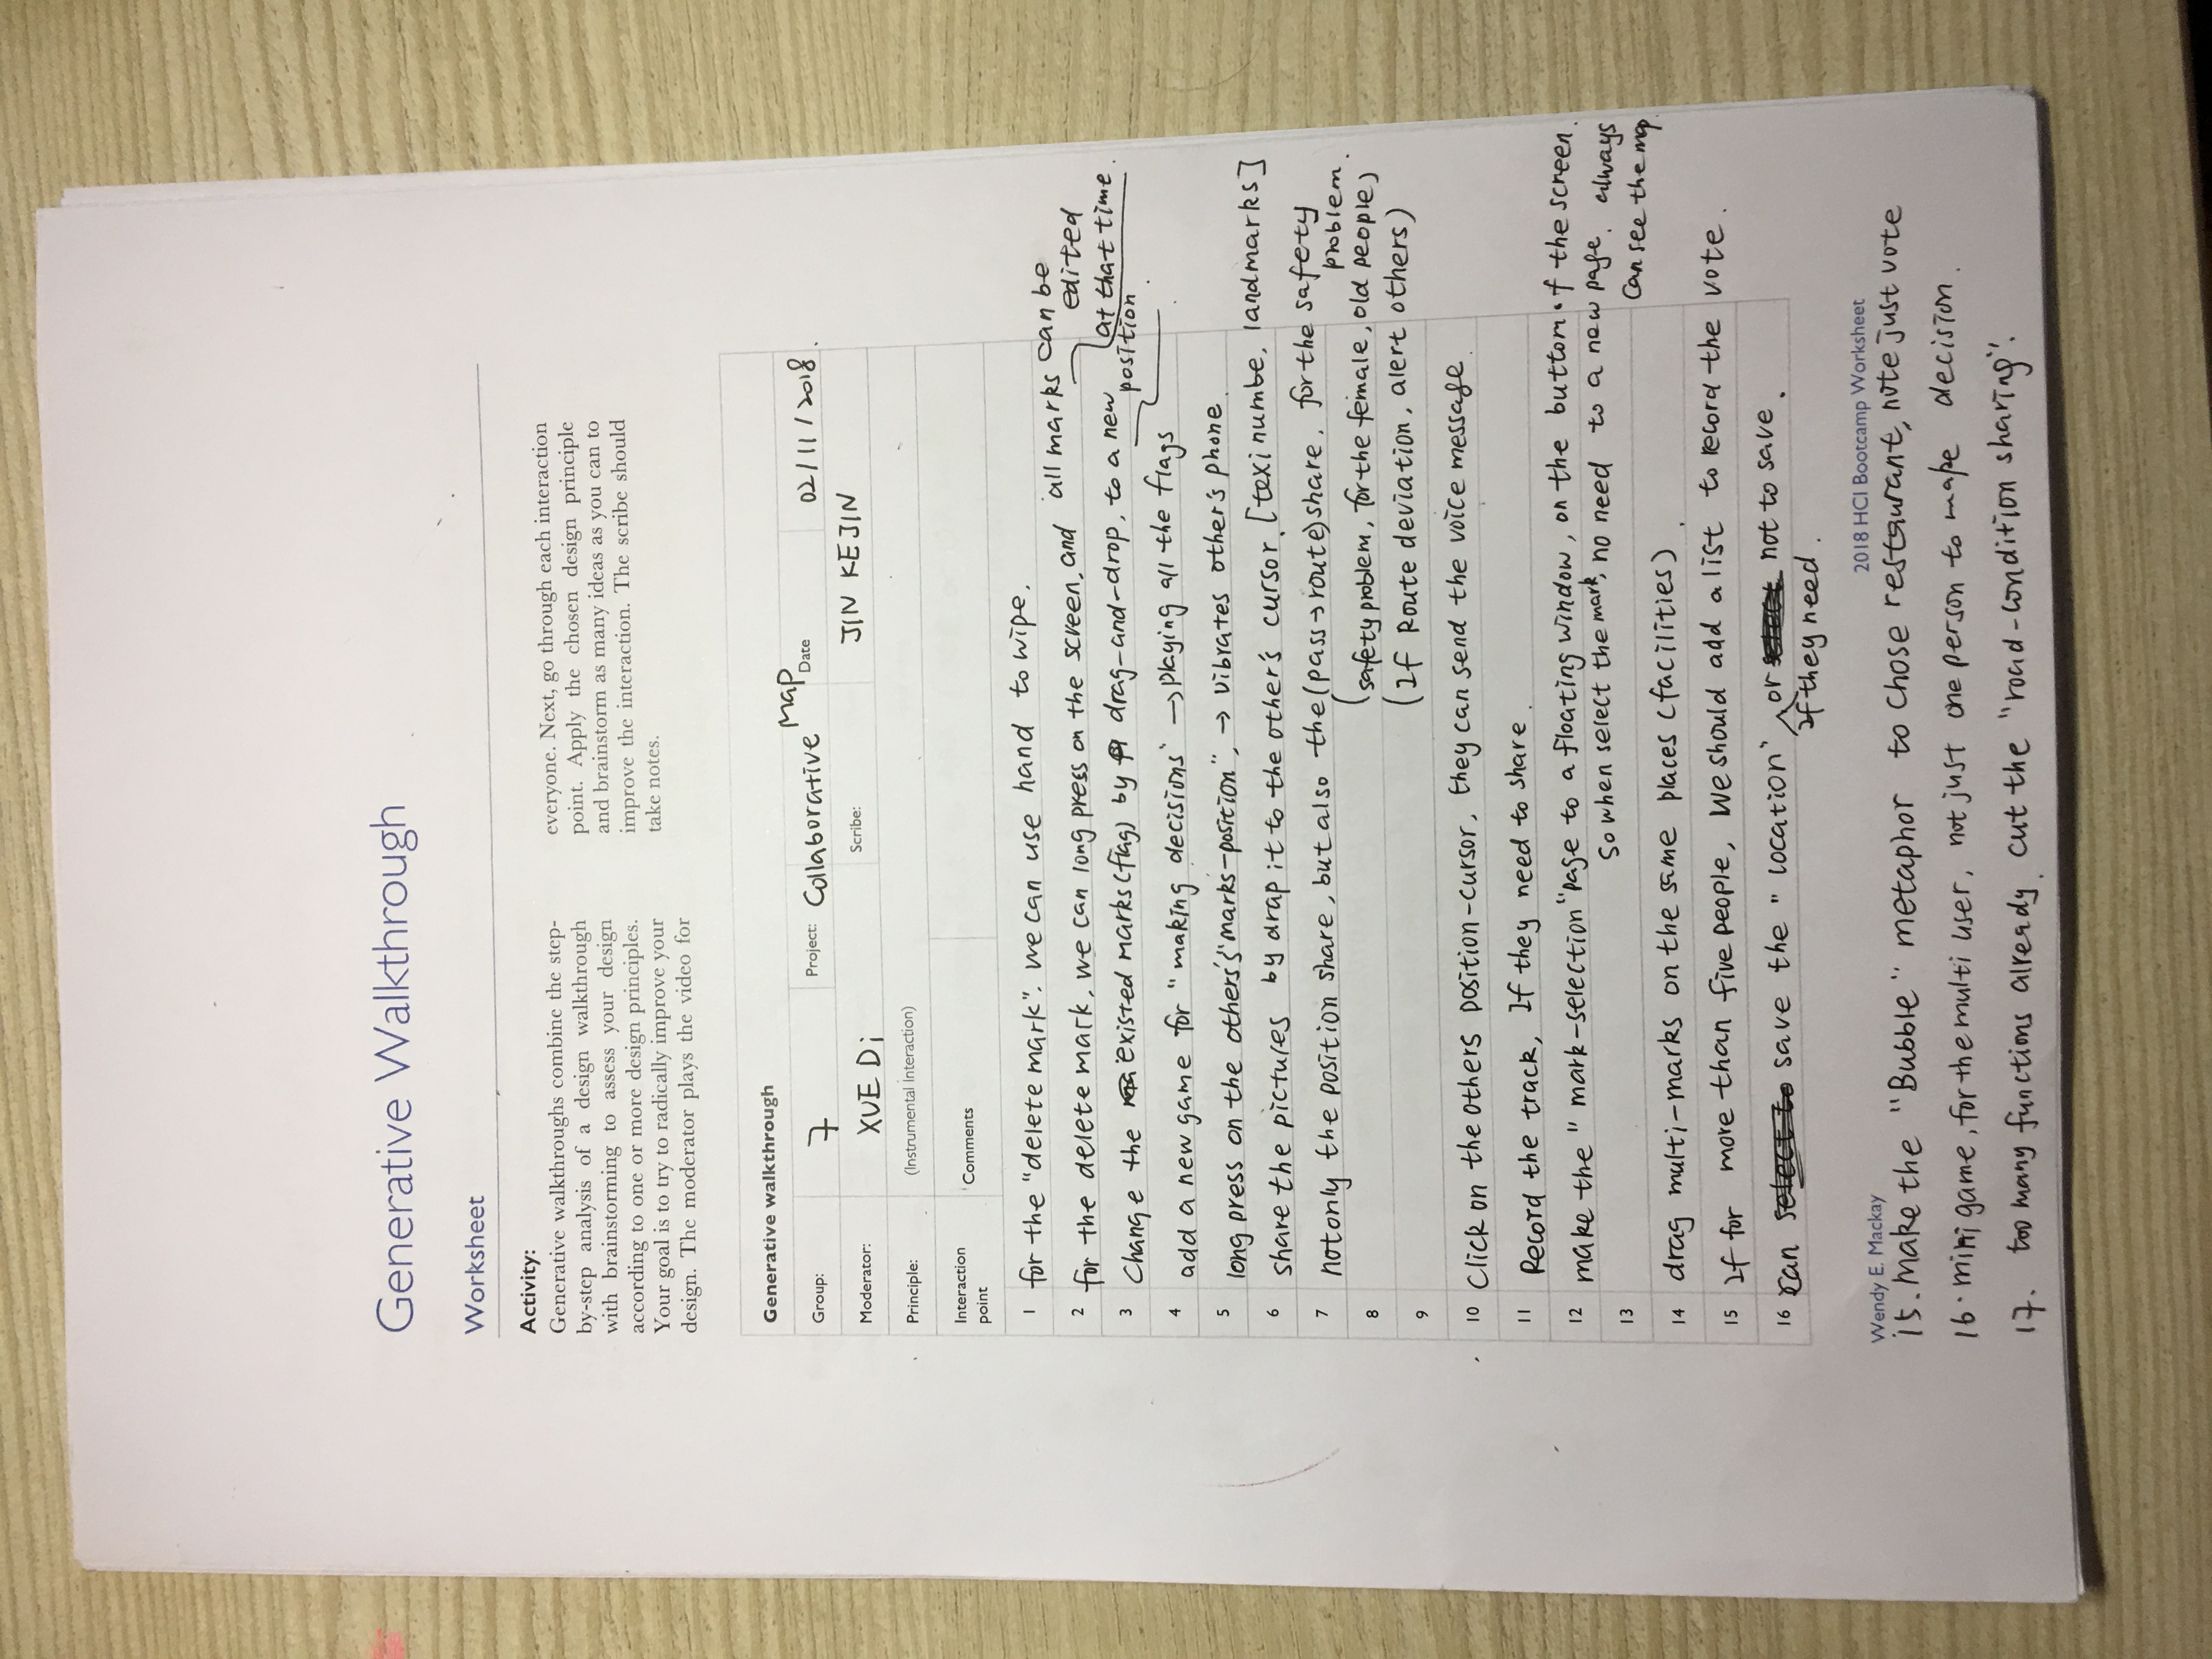 Generative Walkthrough
Worksheet
Activity:
Generative walkthroughs combine the step-
by-step analysis of a design walkthrough
with brainstorming to assess your design
according to one or more design principles.
Your goal is to try to radically improve your
design. The moderator plays the video for
everyone. Next, go through each interaction
point. Apply the chosen design principle
and brainstorm as many ideas as you can to
improve the interaction. The scribe should
take notes.
Generative walkthrough
Group: 7 Project: Collaborative Map Date 02/11/2018.
Moderator: XUE Di Scribe: JIN KEJIN
Principle: (Instrumental Interaction)
Interaction
point
Comments
1 for the "delete mark". we can use hand to wipe.
2 for the delete mark, we can long press on the screen, and all marks can be
edited
at that time.
3 Change the existed marks (flag) by drag-and-drop, to a new
position
4 add a new game for "making decisions" → playing all the flags
5 long press on the others' "marks-position", → vibrates other's phone.
6 share the pictures by drap it to the other's cursor. [texi numbe, landmarks]
7 not only the position share, but also the (pass→route) share. for the safety
problem.
8 (safety problem, for the female, old people)
9 (If Route deviation, alert others)
10 Click on the others position-cursor, they can send the voice message.
11 Record the track, If they need to share.
12 make the "mark-selection" page to a floating window, on the buttom of the screen.
13 So when select the mark, no need to a new page. always
can see the map.
14 drag multi-marks on the same places (facilities).
15 If for more than five people, we should add a list to record the vote.
16 can save the "location" or not to save.
If they need.
Wendy E. Mackay
2018 HCI Bootcamp Worksheet
15. make the "Bubble" metaphor to chose restaurant, note just vote
16. mini game, for the multi user, not just one person to make decision.
17. too many functions already. cut the "road-condition sharing".